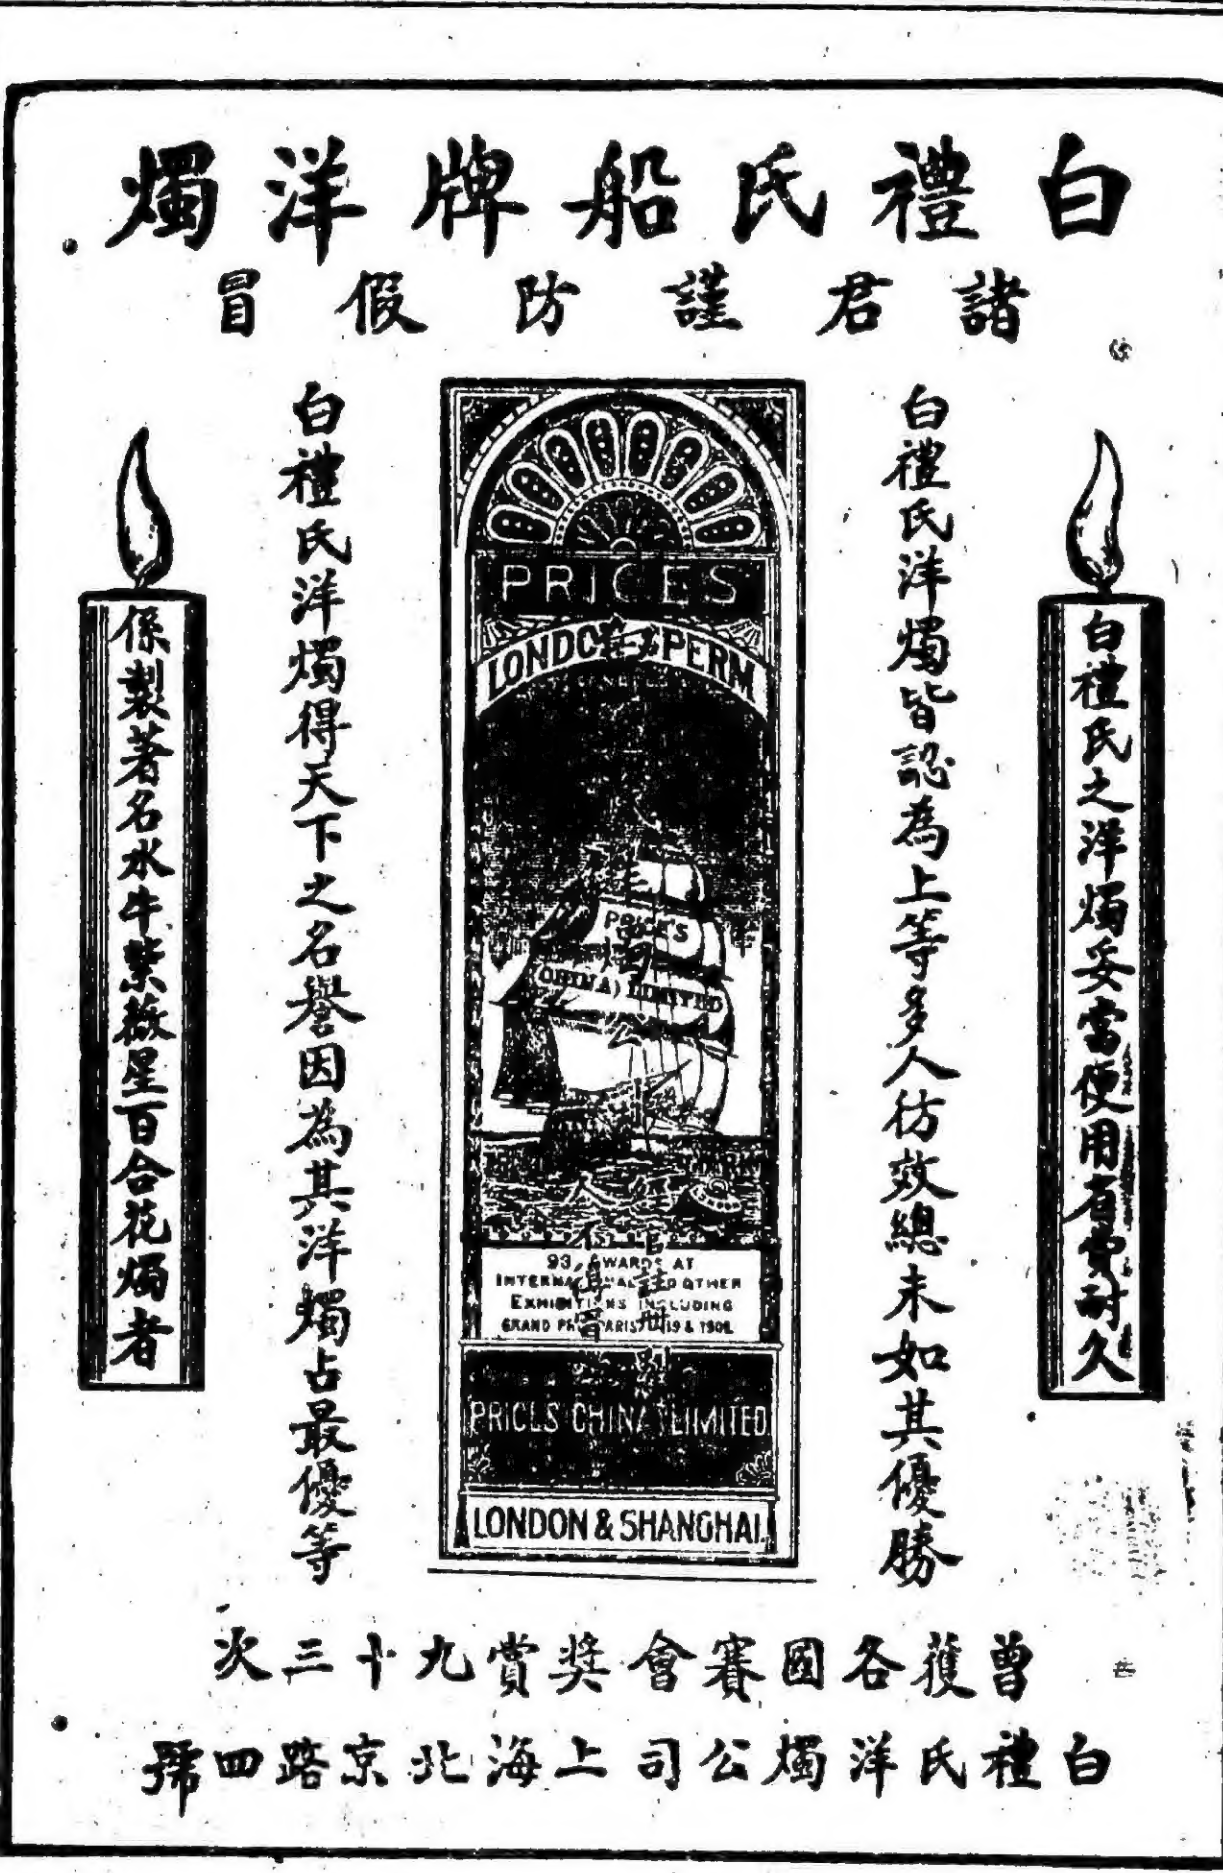 白禮氏船牌洋燭
諸君謹防假冒
白禮氏之洋燭妥當便用省費耐久
白禮氏洋燭皆認為上等多人彷效總未如其優勝
PRICES
LONDON SPERM
PRICE'S
(CHINA) LIMITED
公
93 AWARDS AT
INTERNATIONAL AND OTHER
EXHIBITIONS INCLUDING
GRAND PRIX PARIS
PRICES CHINA LIMITED
LONDON & SHANGHAI
白禮氏洋燭得天下之名譽因為其洋燭占最優等
係製著名水牛紫薇星百合花燭者
曾獲各國賽會獎賞九十三次
白禮氏洋燭公司上海北京路四號